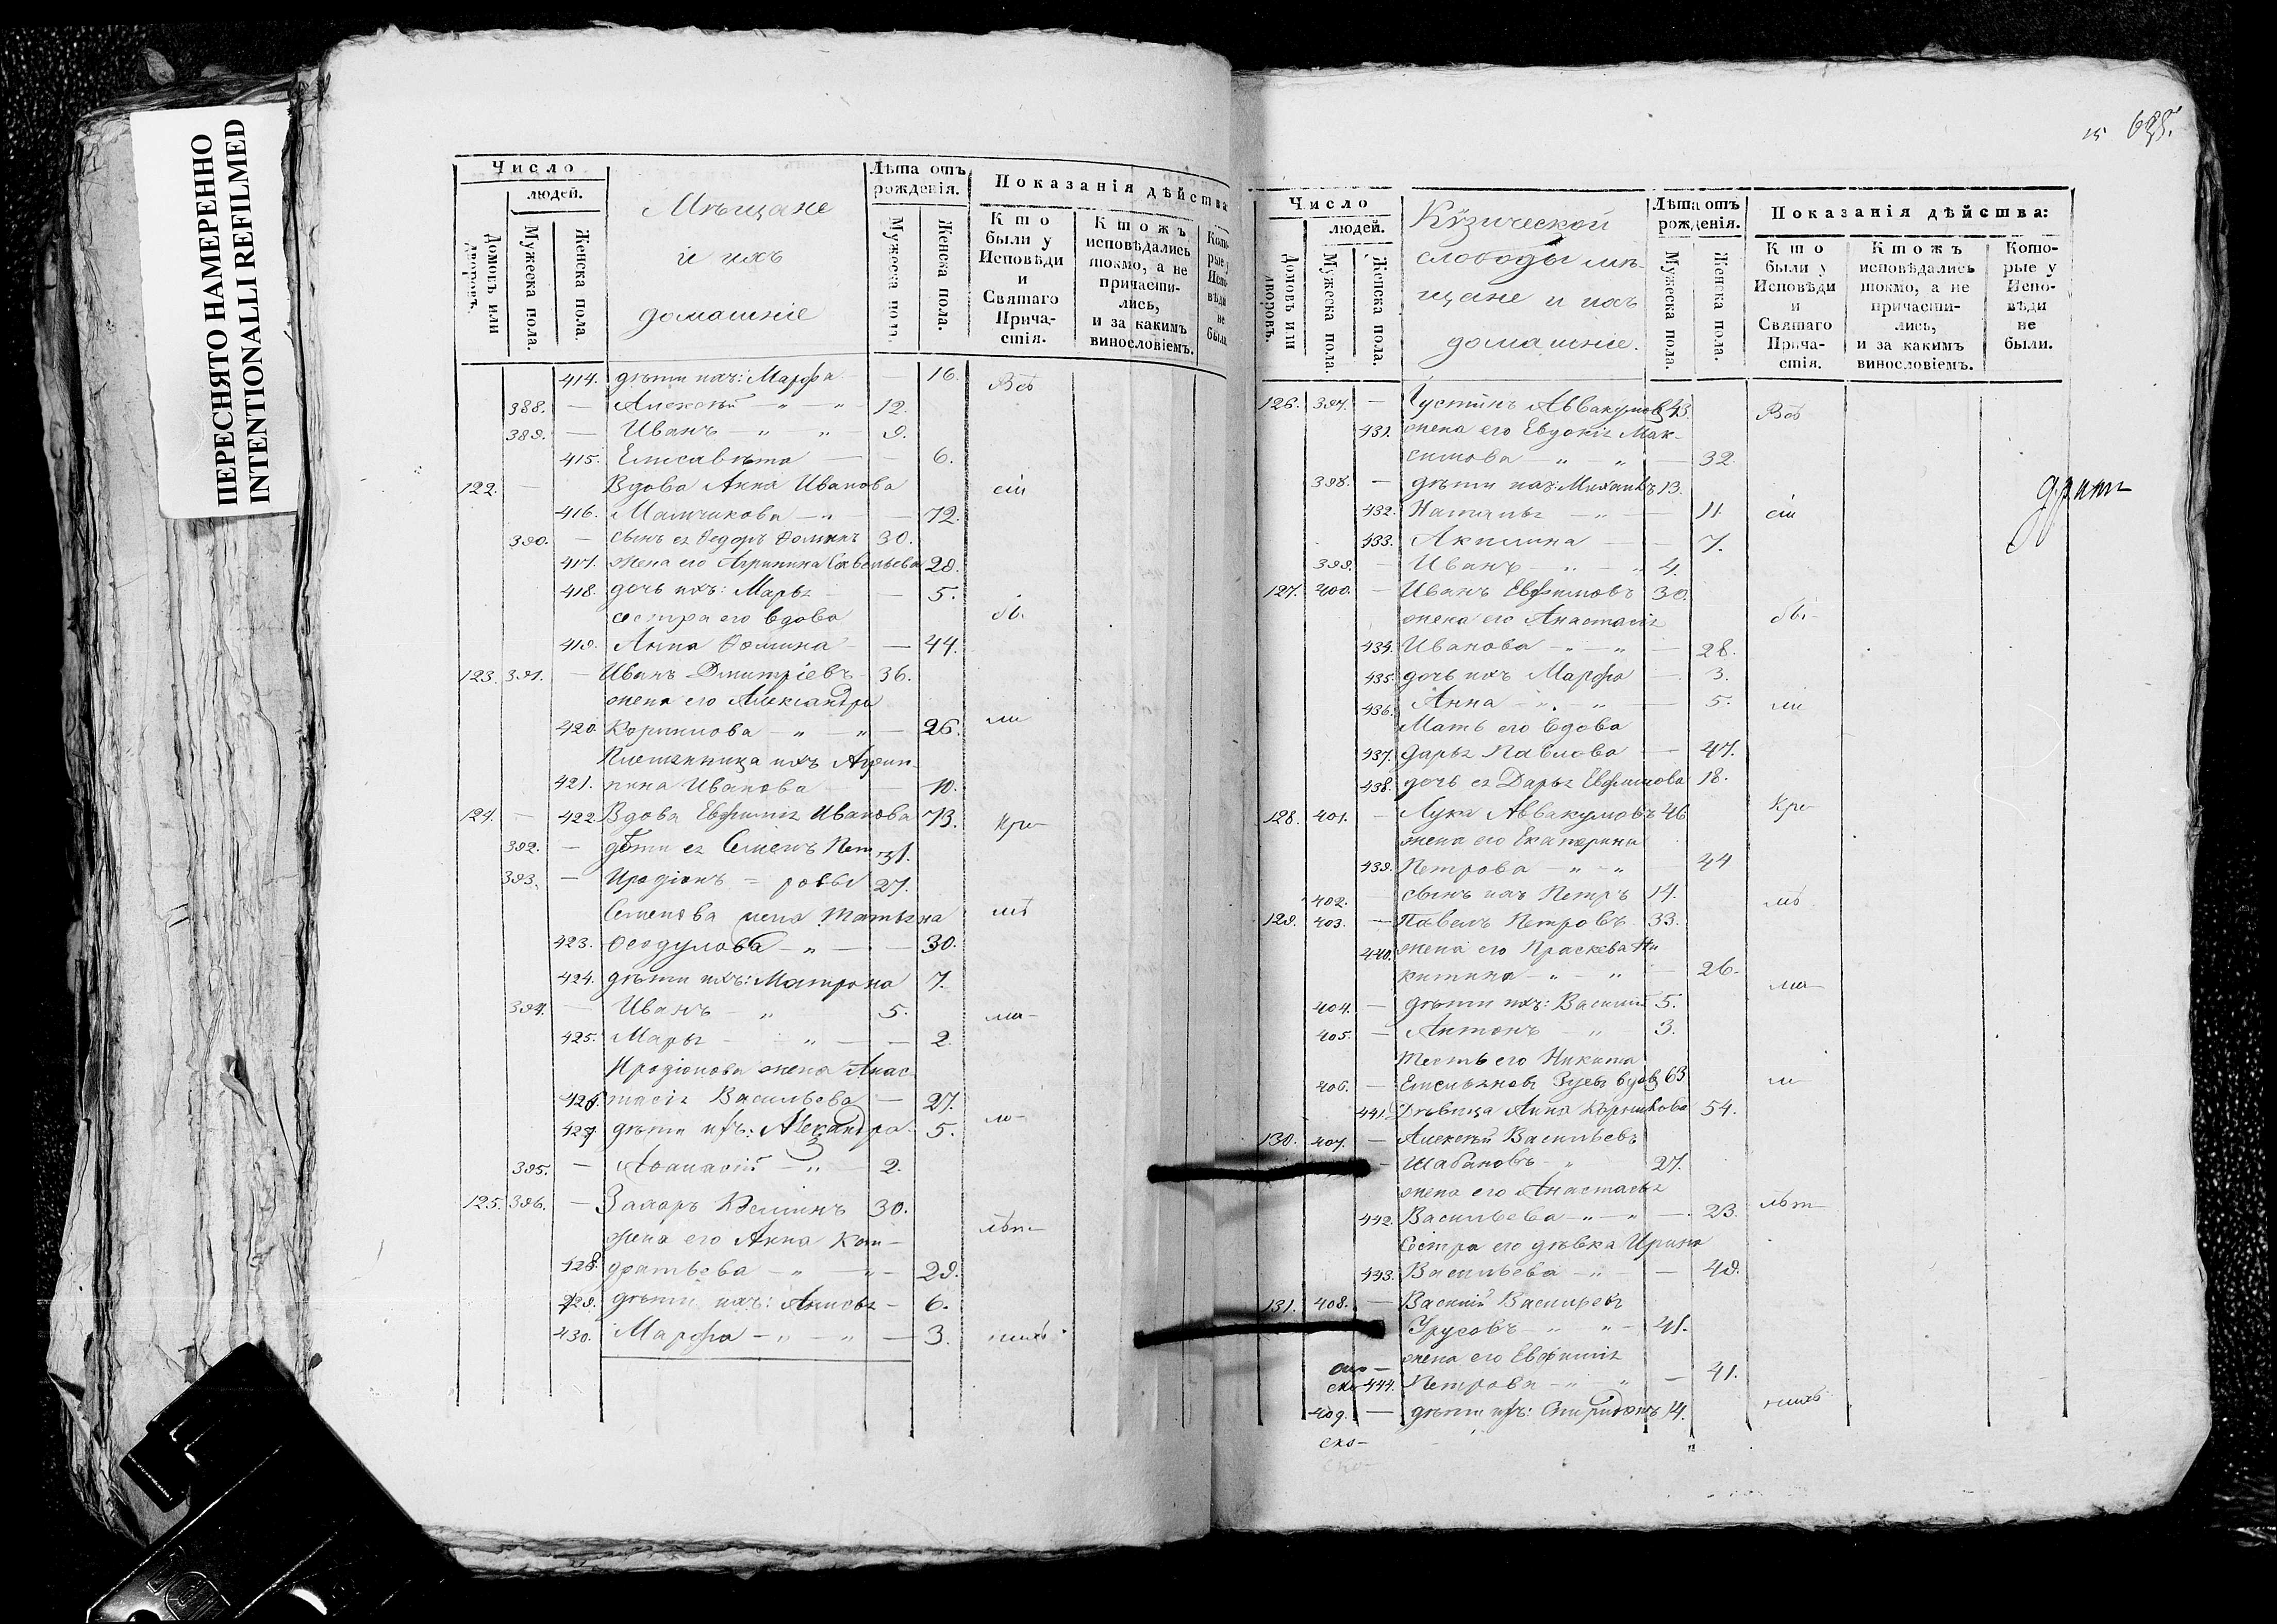 ПЕРЕСНЯТО НАМЕРЕННО
INTENTIONALLI REFILMED
Число
людей.
Домовъ или дворовъ.
Мужеска пола.
Женска пола.
Мѣщане
и ихъ
домашніе
Лѣта отъ рожденія.
Мужеска пола.
Женска пола.
Показанія дѣйства
Кто были у Исповѣди и Святаго Прича-стія.
Ктожъ исповѣдались токмо, а не причасти-лись, и за какимъ винословіемъ.
414. дѣти ихъ: Марфа — 16. Всѣ
388. — Алексѣй " — " 12.
389. — Иванъ — " " — 9.
415. Елисавѣта — — 6.
122. — Вдова Анна Иванова сіи
416. — " — 72.
390. — сынъ ея Ѳедоръ Ѳоминъ 30.
417. жена его Агрипина Савельева 29.
418. дочь ихъ: Марья — 5.
сестра его вдова бы
419. Анна Ѳомина — 44.
123. 391. — Иванъ Дмитріевъ 36.
жена его Александра
420. — " — " — 26. ли
Племянница ихъ Агрип-
421. пина Иванова — 10.
124. — 422. Вдова Евфимія Иванова 73. Кре-
392. — дѣти ея Семенъ Пет 31.
393. — Иродіонъ = ровы 27.
Семенова жена Татьяна
423. Ѳеодулова — " — — 30.
424. дѣти ихъ: Матрона 7.
394. — Иванъ — " 5. ли-
425. Марья — " — — 2.
Иродіонова жена Анас-
426. тасія Васильева — 27.
427. дѣти ихъ: Александра 5.
395. — Аѳанасій — " — 2.
125. 396. — Захаръ 30.
жена его Анна Кон-
428. дратьева — " — " — 29.
429. дѣти ихъ: Анисья — 6.
430. Марфа — " — " — 3.
15
Число
людей.
Домовъ или дворовъ.
Мужеска пола.
Женска пола.
Кузической
слободы мѣ-
щане и ихъ
домашніе.
Лѣта отъ рожденія.
Мужеска пола.
Женска пола.
Показанія дѣйства:
Кто были у Исповѣди и Святаго Прича-стія.
Ктожъ исповѣдались токмо, а не причасти-лись, и за какимъ винословіемъ.
Кото-рые у Испо-вѣди не были.
126. 397. — Густинъ Аввакумовъ 43. Всѣ
431. жена его Евдокія Мак-
симова — " — " — 32.
398. — дѣти ихъ: Михаилъ 13.
432. Наталья — " — 11. сіи
433. Акилина — — 7.
399. — Иванъ — " — " 4.
127. 400. — Иванъ Евфимовъ 30.
жена его Анастасія бы-
434. Иванова — " — " — 28.
435. дочь ихъ Марфа — 3.
436. Анна — " — " — 5. ли
Мать его вдова
437. Дарья Павлова — 47.
438. дочь ея Дарья Евфимова 18.
128. 401. — Лука Аввакумовъ 46 Кре-
жена его Екатерина
439. Петрова — " — " 44
402. сынъ ихъ Петръ 14.
129. 403. — Павелъ Петровъ 33.
440. жена его Праскева Ни
китина — " — " — 26.
404. — дѣти ихъ: Василій 5.
405. — Антонъ — " — 3.
Тесть его Никита
406. — Емельяновъ вдов 63
441. Дѣвица Анна 54.
130. 407. — Алексѣй Васильевъ
— Шабановъ — " 27.
жена его Анастасья
442. Васильева — " — " — 23.
Сестра его дѣвка Ирина
443. Васильева — " — 49.
131. 408. — Василій Васильевъ
Урусовъ — " " — 41.
жена его Евфимія
444. Петрова — " — " — 41.
409. — дѣти ихъ: Спиридонъ 14.